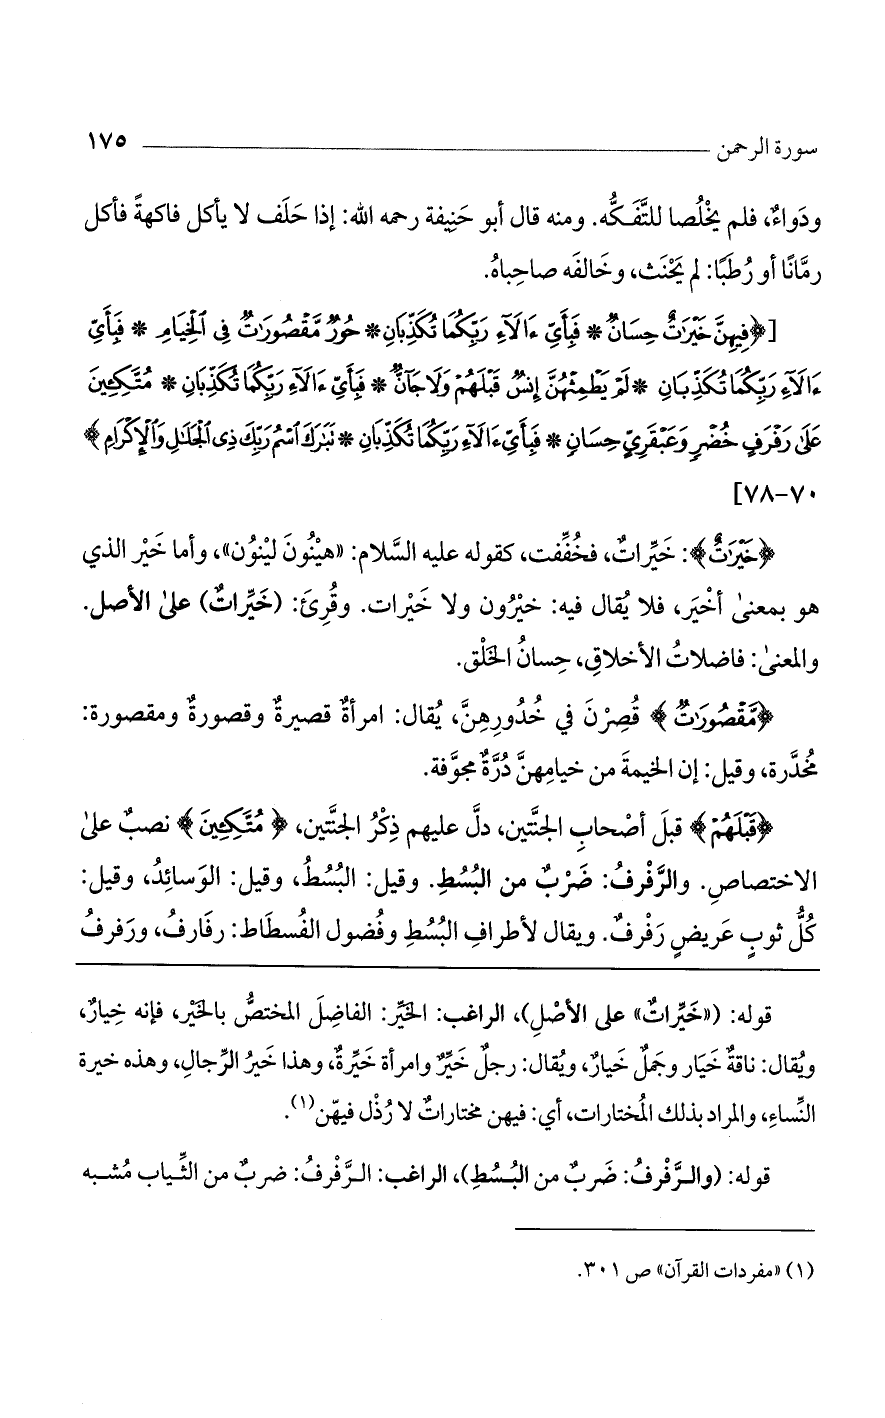 سورة الرحمن ١٧٥
ودَواءٌ، فلم يخْلُصا للتَّفَكُّه. ومنه قال أبو حَنِيفة رحمه الله: إذا حَلَف لا يأكل فاكهةً فأكل
رمَّانًا أو رُطَبًا: لم يَحْنَث، وخَالفَه صاحِباهُ.
[﴿فِيهِنَّ خَيْرَٰتٌ حِسَانٌ * فَبِأَيِّ ءَالَآءِ رَبِّكُمَا تُكَذِّبَانِ * حُورٌ مَّقْصُورَٰتٌ فِى ٱلْخِيَامِ * فَبِأَيِّ
ءَالَآءِ رَبِّكُمَا تُكَذِّبَانِ * لَمْ يَطْمِثْهُنَّ إِنسٌ قَبْلَهُمْ وَلَا جَآنٌّ * فَبِأَيِّ ءَالَآءِ رَبِّكُمَا تُكَذِّبَانِ * مُتَّكِـِٔينَ
عَلَىٰ رَفْرَفٍ خُضْرٍ وَعَبْقَرِيٍّ حِسَانٍ * فَبِأَيِّ ءَالَآءِ رَبِّكُمَا تُكَذِّبَانِ * نَبَٰرَكَ ٱسْمُ رَبِّكَ ذِى ٱلْجَلَٰلِ وَٱلْإِكْرَامِ﴾
٧٠-٧٨]
﴿خَيْرَٰتٌ﴾: خَيِّراتٌ، فخُفِّفت، كقوله عليه السَّلام: «هيْنُونَ لَيْنوُن»، وأما خَيْر الذي
هو بمعنىٰ أخْيَر، فلا يُقال فيه: خيْرُون ولا خَيْرات. وقُرِئَ: (خَيِّراتٌ) علىٰ الأصل.
والمعنىٰ: فاضلاتُ الأخلاقِ، حِسانُ الخَلْق.
﴿مَّقْصُورَٰتٌ﴾ قُصِرْنَ في خُدُورِهِنَّ، يُقال: امرأةٌ قصيرةٌ وقصورةٌ ومقصورة:
مخُدَّرة، وقيل: إن الخيمةَ من خيامِهنَّ دُرَّةٌ مجوَّفة.
﴿قَبْلَهُمْ﴾ قبلَ أصْحابِ الجنَّتين، دلَّ عليهم ذِكْرُ الجنَّتين، ﴿مُتَّكِـِٔينَ﴾ نصبٌ علىٰ
الاختصاصِ. والرَّفْرفُ: ضَرْبٌ من البُسُطِ. وقيل: البُسُطُ، وقيل: الوَسائِدُ، وقيل:
كُلُّ ثوبٍ عَريضٍ رَفْرفٌ. ويقال لأطرافِ البُسُطِ وفُضول الفُسطَاط: رفَارفُ، ورَفرفُ
قوله: («خَيِّراتٌ» على الأصْلِ)، الراغب: الخَيِّر: الفاضِلَ المختصُّ بالخَيْر، فإنه خِيارٌ،
ويُقال: ناقةٌ خَيَار وجَملٌ خَيارٌ، ويُقال: رجلٌ خَيِّرٌ وامرأة خَيِّرةٌ، وهذا خَيرُ الرِّجالِ، وهذه خيرة
النِّساءِ، والمراد بذلك المُختارات، أي: فيهن مختاراتٌ لا رُذْل فيهّن(١).
قوله: (والرَّفْرفُ: ضَربٌ من البُسُطِ)، الراغب: الرَّفْرفُ: ضربٌ من الثِّياب مُشبه
(١) «مفردات القرآن» ص ٣٠١.